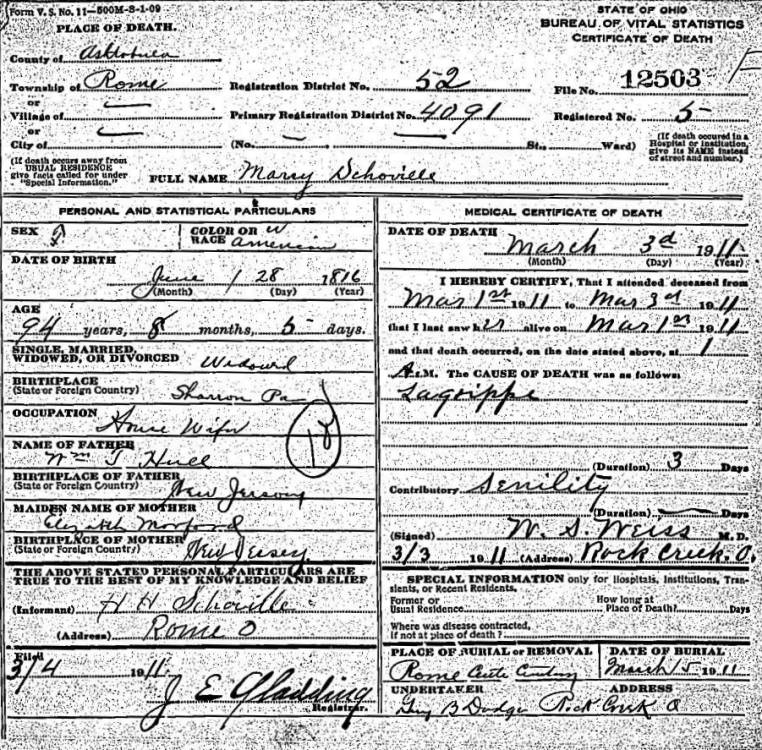 Form V. S. No. 11—500M-8-1-09
PLACE OF DEATH.
STATE OF OHIO
BUREAU OF VITAL STATISTICS
CERTIFICATE OF DEATH
County of Ashtabula
Township of Rome Registration District No. 52 File No. 12503
or
Village of — Primary Registration District No. 4091 Registered No. 5
or
City of — (No. — — St., Ward)
(If death occured in a Hospital or institution, give its NAME instead of street and number.)
(If death occurs away from USUAL RESIDENCE give facts called for under "Special Information.")
FULL NAME Marcy Schoville
PERSONAL AND STATISTICAL PARTICULARS
SEX F COLOR OR RACE W American
DATE OF BIRTH
June 28 1816
(Month) (Day) (Year)
AGE
94 years, 8 months, 5 days.
SINGLE, MARRIED, WIDOWED, OR DIVORCED Widowd
BIRTHPLACE
(State or Foreign Country) Sharron Pa
OCCUPATION
House Wife
NAME OF FATHER
Wm T Hull
BIRTHPLACE OF FATHER
(State or Foreign Country) New Jersey
MAIDEN NAME OF MOTHER
Elizabeth
BIRTHPLACE OF MOTHER
(State or Foreign Country) New Jersey
THE ABOVE STATED PERSONAL PARTICULARS ARE
TRUE TO THE BEST OF MY KNOWLEDGE AND BELIEF
(Informant) H H Schoville
(Address) Rome O
Filed
3/4 1911. J E Gladding
Registrar.
MEDICAL CERTIFICATE OF DEATH
DATE OF DEATH
March 3d 1911
(Month) (Day) (Year)
I HEREBY CERTIFY, That I attended deceased from
Mar 1st 1911 to Mar 3d 1911
that I last saw her alive on Mar 1st 1911
and that death occurred, on the date stated above, at 1
A. M. The CAUSE OF DEATH was as follows:
Lagrippe
(Duration) 3 Days
Contributory Senility
(Duration) — Days
(Signed) W. S. Weiss M. D.
3/3 1911 (Address) Rock Creek. O.
SPECIAL INFORMATION only for Hospitals, Institutions, Transients, or Recent Residents.
Former or Usual Residence How long at Place of Death? Days
Where was disease contracted,
if not at place of death?
PLACE OF BURIAL or REMOVAL DATE OF BURIAL
Rome March 5 1911
UNDERTAKER ADDRESS
Guy B Dodge Rock Creek O